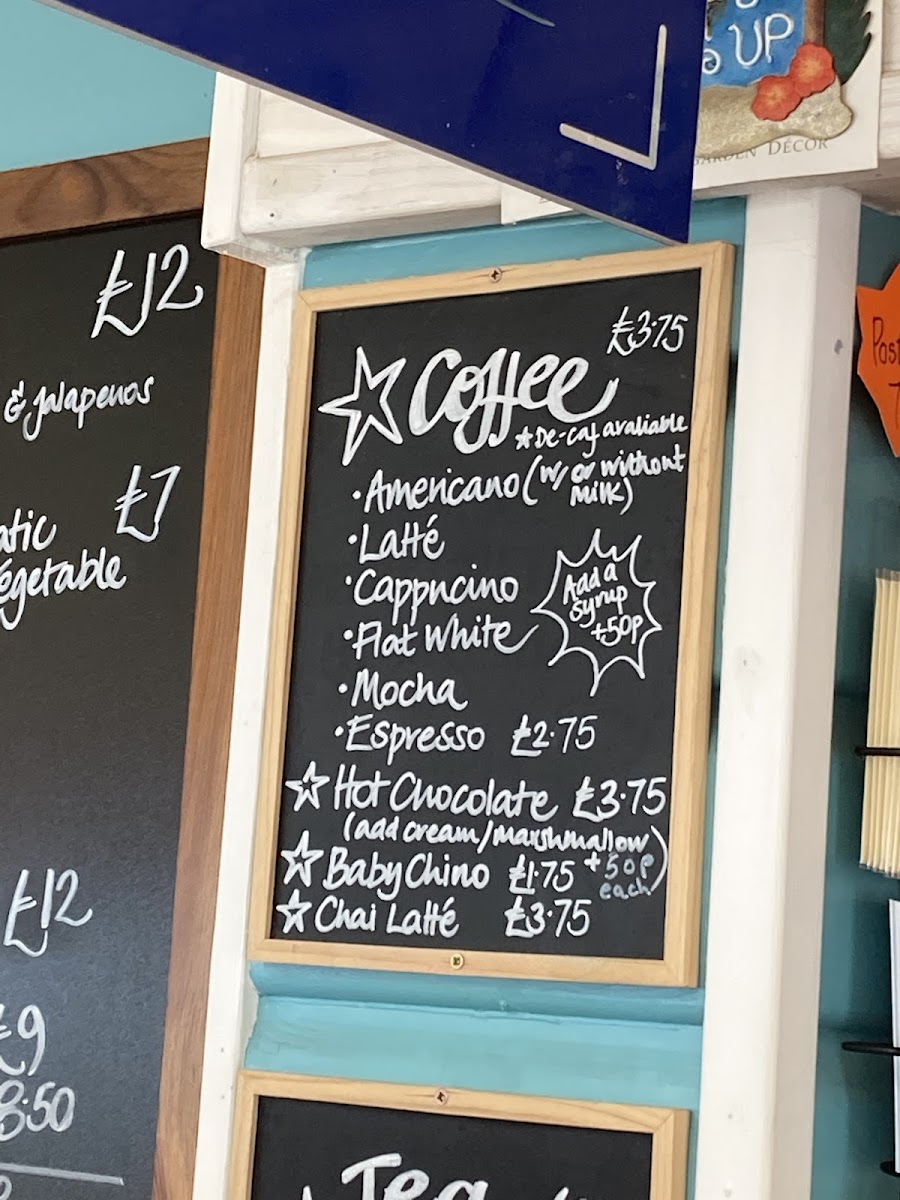 UP
GARDEN DÉCOR
£12
& Jalapenos
£7
Vegetable
£12
£9
8.50
£3.75
Coffee
*De-caf avaliable
• Americano (w/ or without
Milk)
• Latté
• Cappucino
• Flat White
• Mocha
• Espresso £2.75
Add a
syrup
+50p
Hot Chocolate £3.75
(add cream/marshmallow)
+50p
each
Baby Chino £1.75
Chai Latté £3.75
Tea